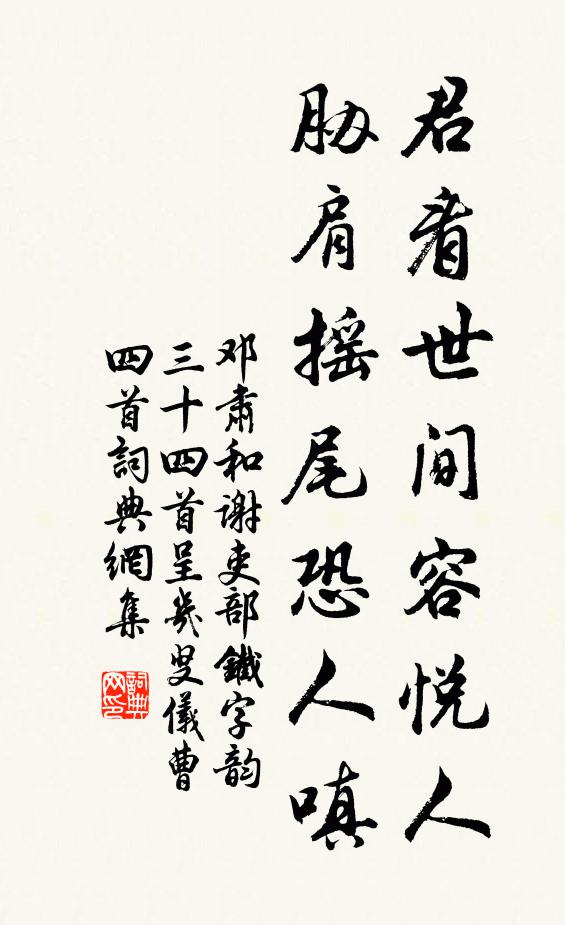 君看世间容悦人
胁肩摇尾恐人嗔
邓肃和谢吏部鐵字韵
三十四首呈幾叟儀曹
四首詞典網集
詞典網印